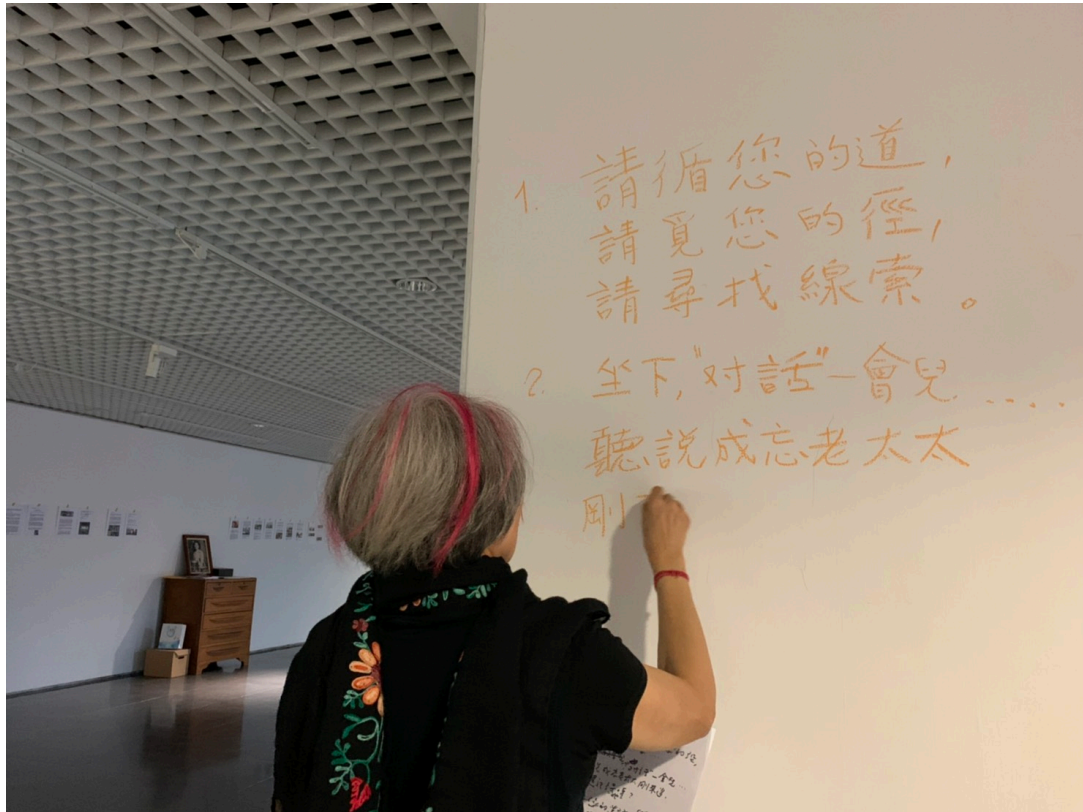 1. 請循您的道,
請覓您的徑,
請尋找線索。
2. 坐下,"对話"一會兒.....
聽説成忘老太太
剛